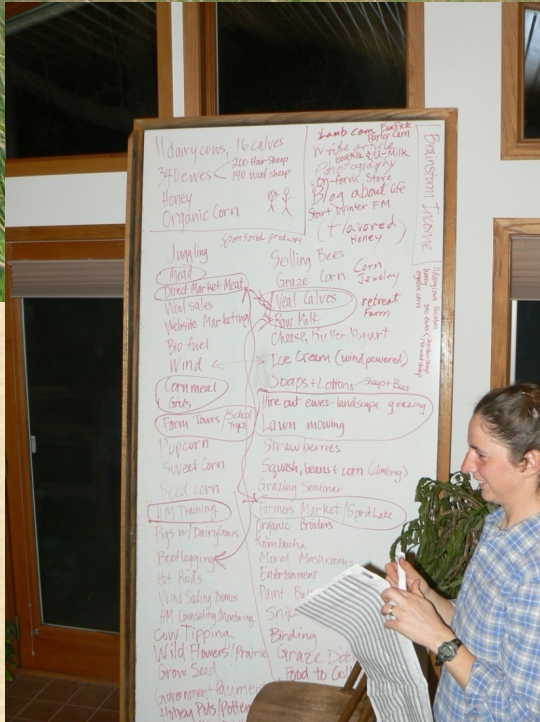 11 dairy cows, 16 calves
340 ewes < 200 Hair Sheep
140 wool sheep
Honey
Organic Corn
Lamb cam EwePick
Parlor Cam
Write article
Ewe Milk & U-Milk
Photography
On-farm Store
Blog about life
Start Winter FM
(Flavored)
Honey
Brainstorm Income
Sponsored produces
Juggling
Mead
Direct Market Meat
Wool sales
Website Marketing
Bio fuel
Wind
Cornmeal
Grits
Farm Tours/School
Trips
Popcorn
Sweet Corn
Seed corn
HM Training
Pigs w/Dairy Cows
Bootlegging
Hot Rods
Wind Sailing Demos
HM Counseling/Mentoring
Cow Tipping
Wild Flowers/Prairie
Grow Seed
Government Payments
Honey Pots/Potter
Selling Bees
Graze Corn
Corn
Jewelry
Veal Calves
Raw Milk
retreat
Farm
Cheese, Butter, Yogurt
Ice Cream (wind powered)
Soaps + Lotions - Sheep + Bees
Hire out ewes - landscape grazing
Lawn mowing
Strawberries
Squash, beans & corn (climbing)
Grazing Seminar
Farmers Market/Spirit Lake
Organic Broilers
Kombucha
Morel Mushrooms
Entertainment
Paint Ba
Birding
Graze
Food to Go